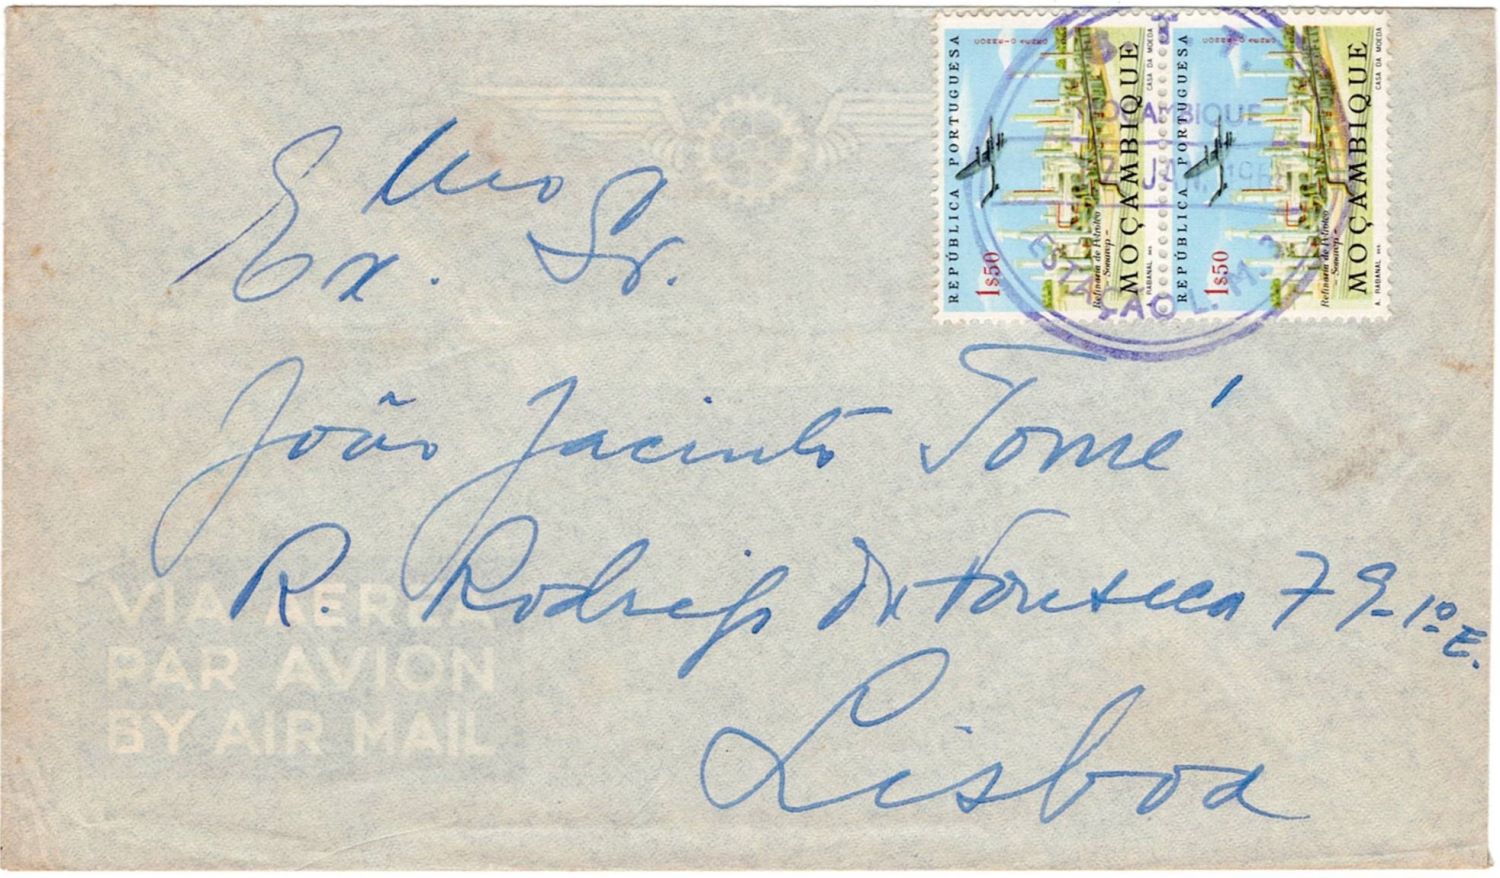 REPÚBLICA PORTUGUESA
CORREIO AÉREO
1$50
Refinaria de Petróleo
- Sonarep -
MOÇAMBIQUE
A. RABANAL DES.
CASA DA MOEDA
REPÚBLICA PORTUGUESA
CORREIO AÉREO
1$50
Refinaria de Petróleo
- Sonarep -
MOÇAMBIQUE
A. RABANAL DES.
CASA DA MOEDA
MOÇAMBIQUE
JUN.
ESTAÇÃO L. M. 3
Exmo Sr.
João Jacinto Tomé
R. Rodrigo da Fonseca 79-1º E.
Lisboa
VIA AEREA
PAR AVION
BY AIR MAIL